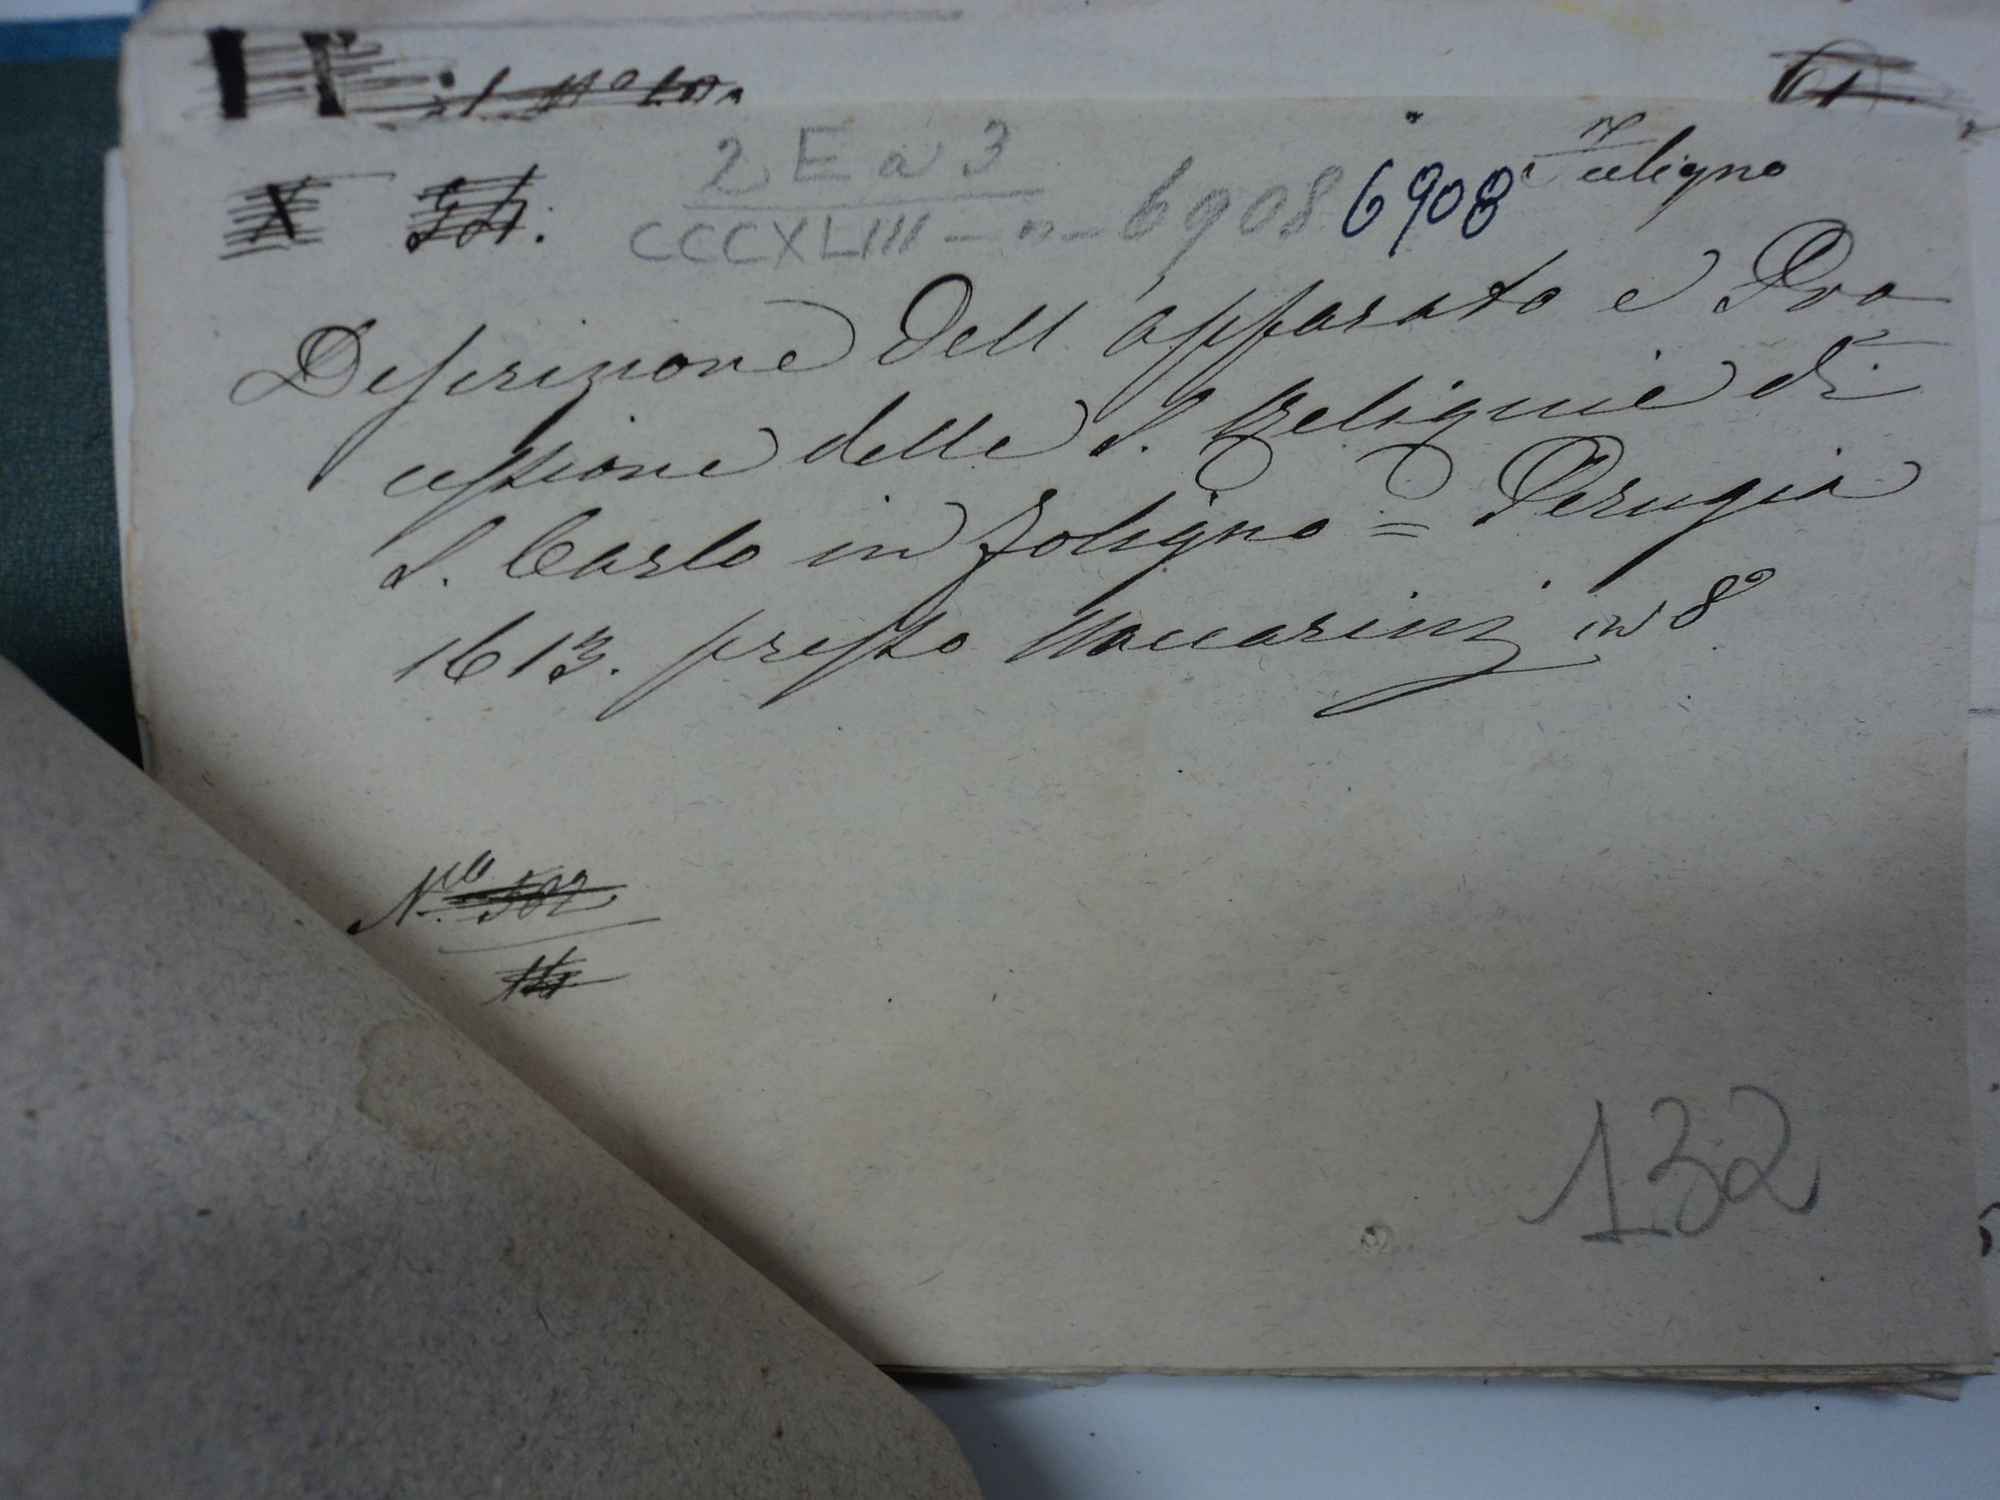 2 E a 3
CCCXLIII - n - 6908 6908
Descrizione dell'apparato e Pro
cessione delle S. Reliquie di
S. Carlo in Foligno = Perugia
1613. presso Naccarini in 8º
N.º 502
14
132